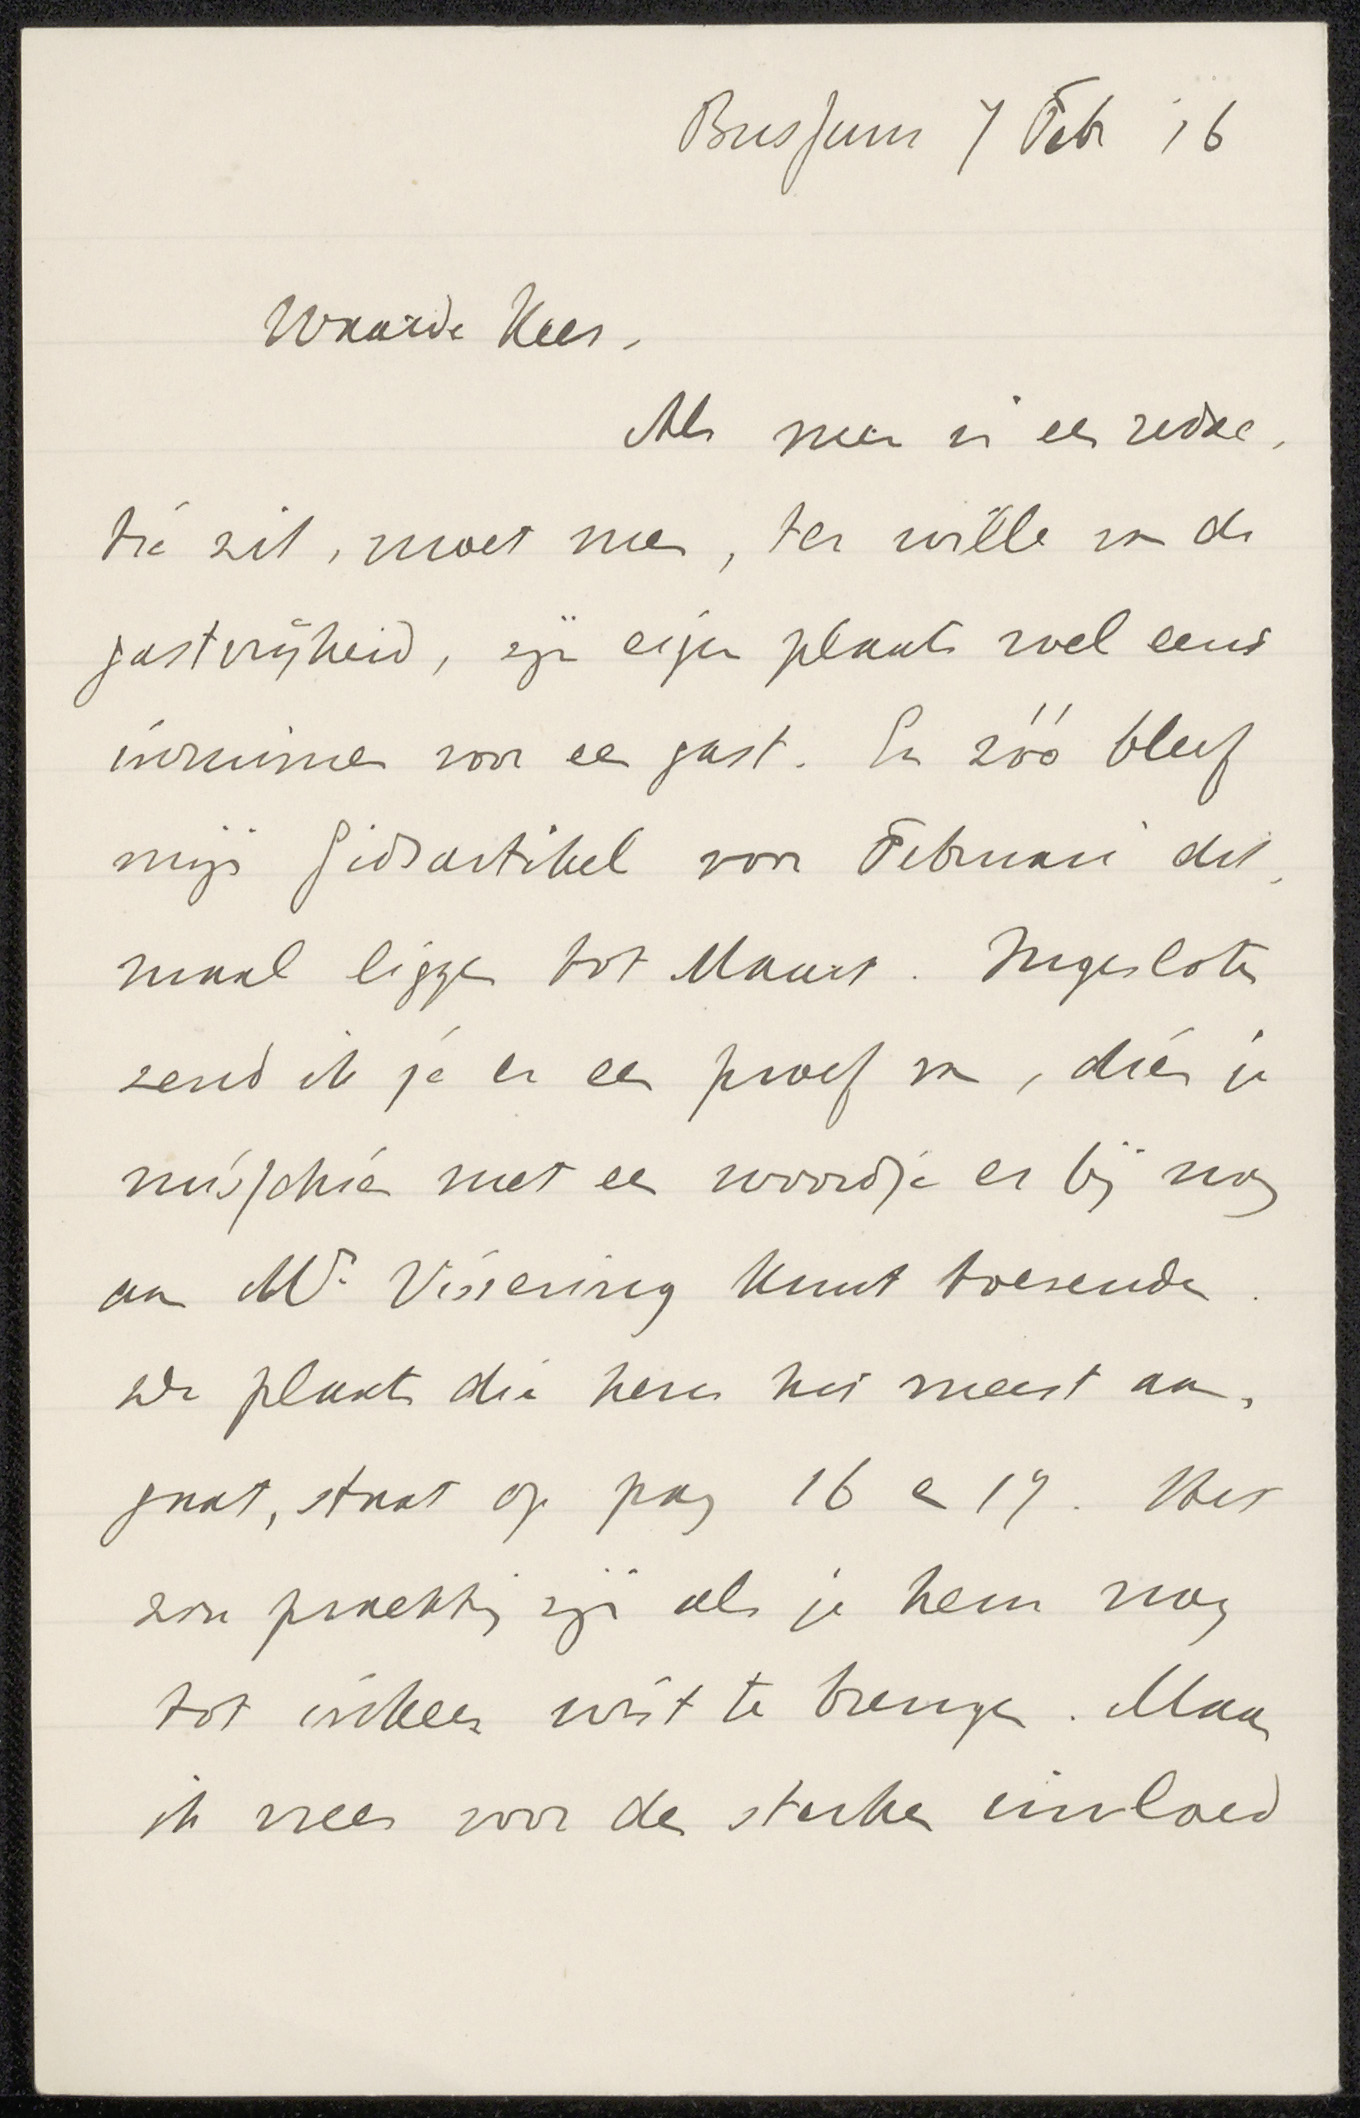 Bussum 7 Febr '16
Waarde Kees,
Als men in een redac-
tie zit, moet men, ter wille van de
gastvrijheid, zijn eigen plaats wel eens
inruimen voor een gast. En zóó bleef
mijn Gidsartikel voor Februari dit-
maal liggen tot Maart. Ingesloten
zend ik je er een proef van, dien je
misschien met een woordje er bij nog
aan Mr. Vissering kunt toezenden.
De plaats die hem het meest aan-
gaat, staat op pag 16 en 17. Het
zou prachtig zijn als je hem nog
tot inkeer wist te brengen. Maar
ik vrees voor den sterken invloed